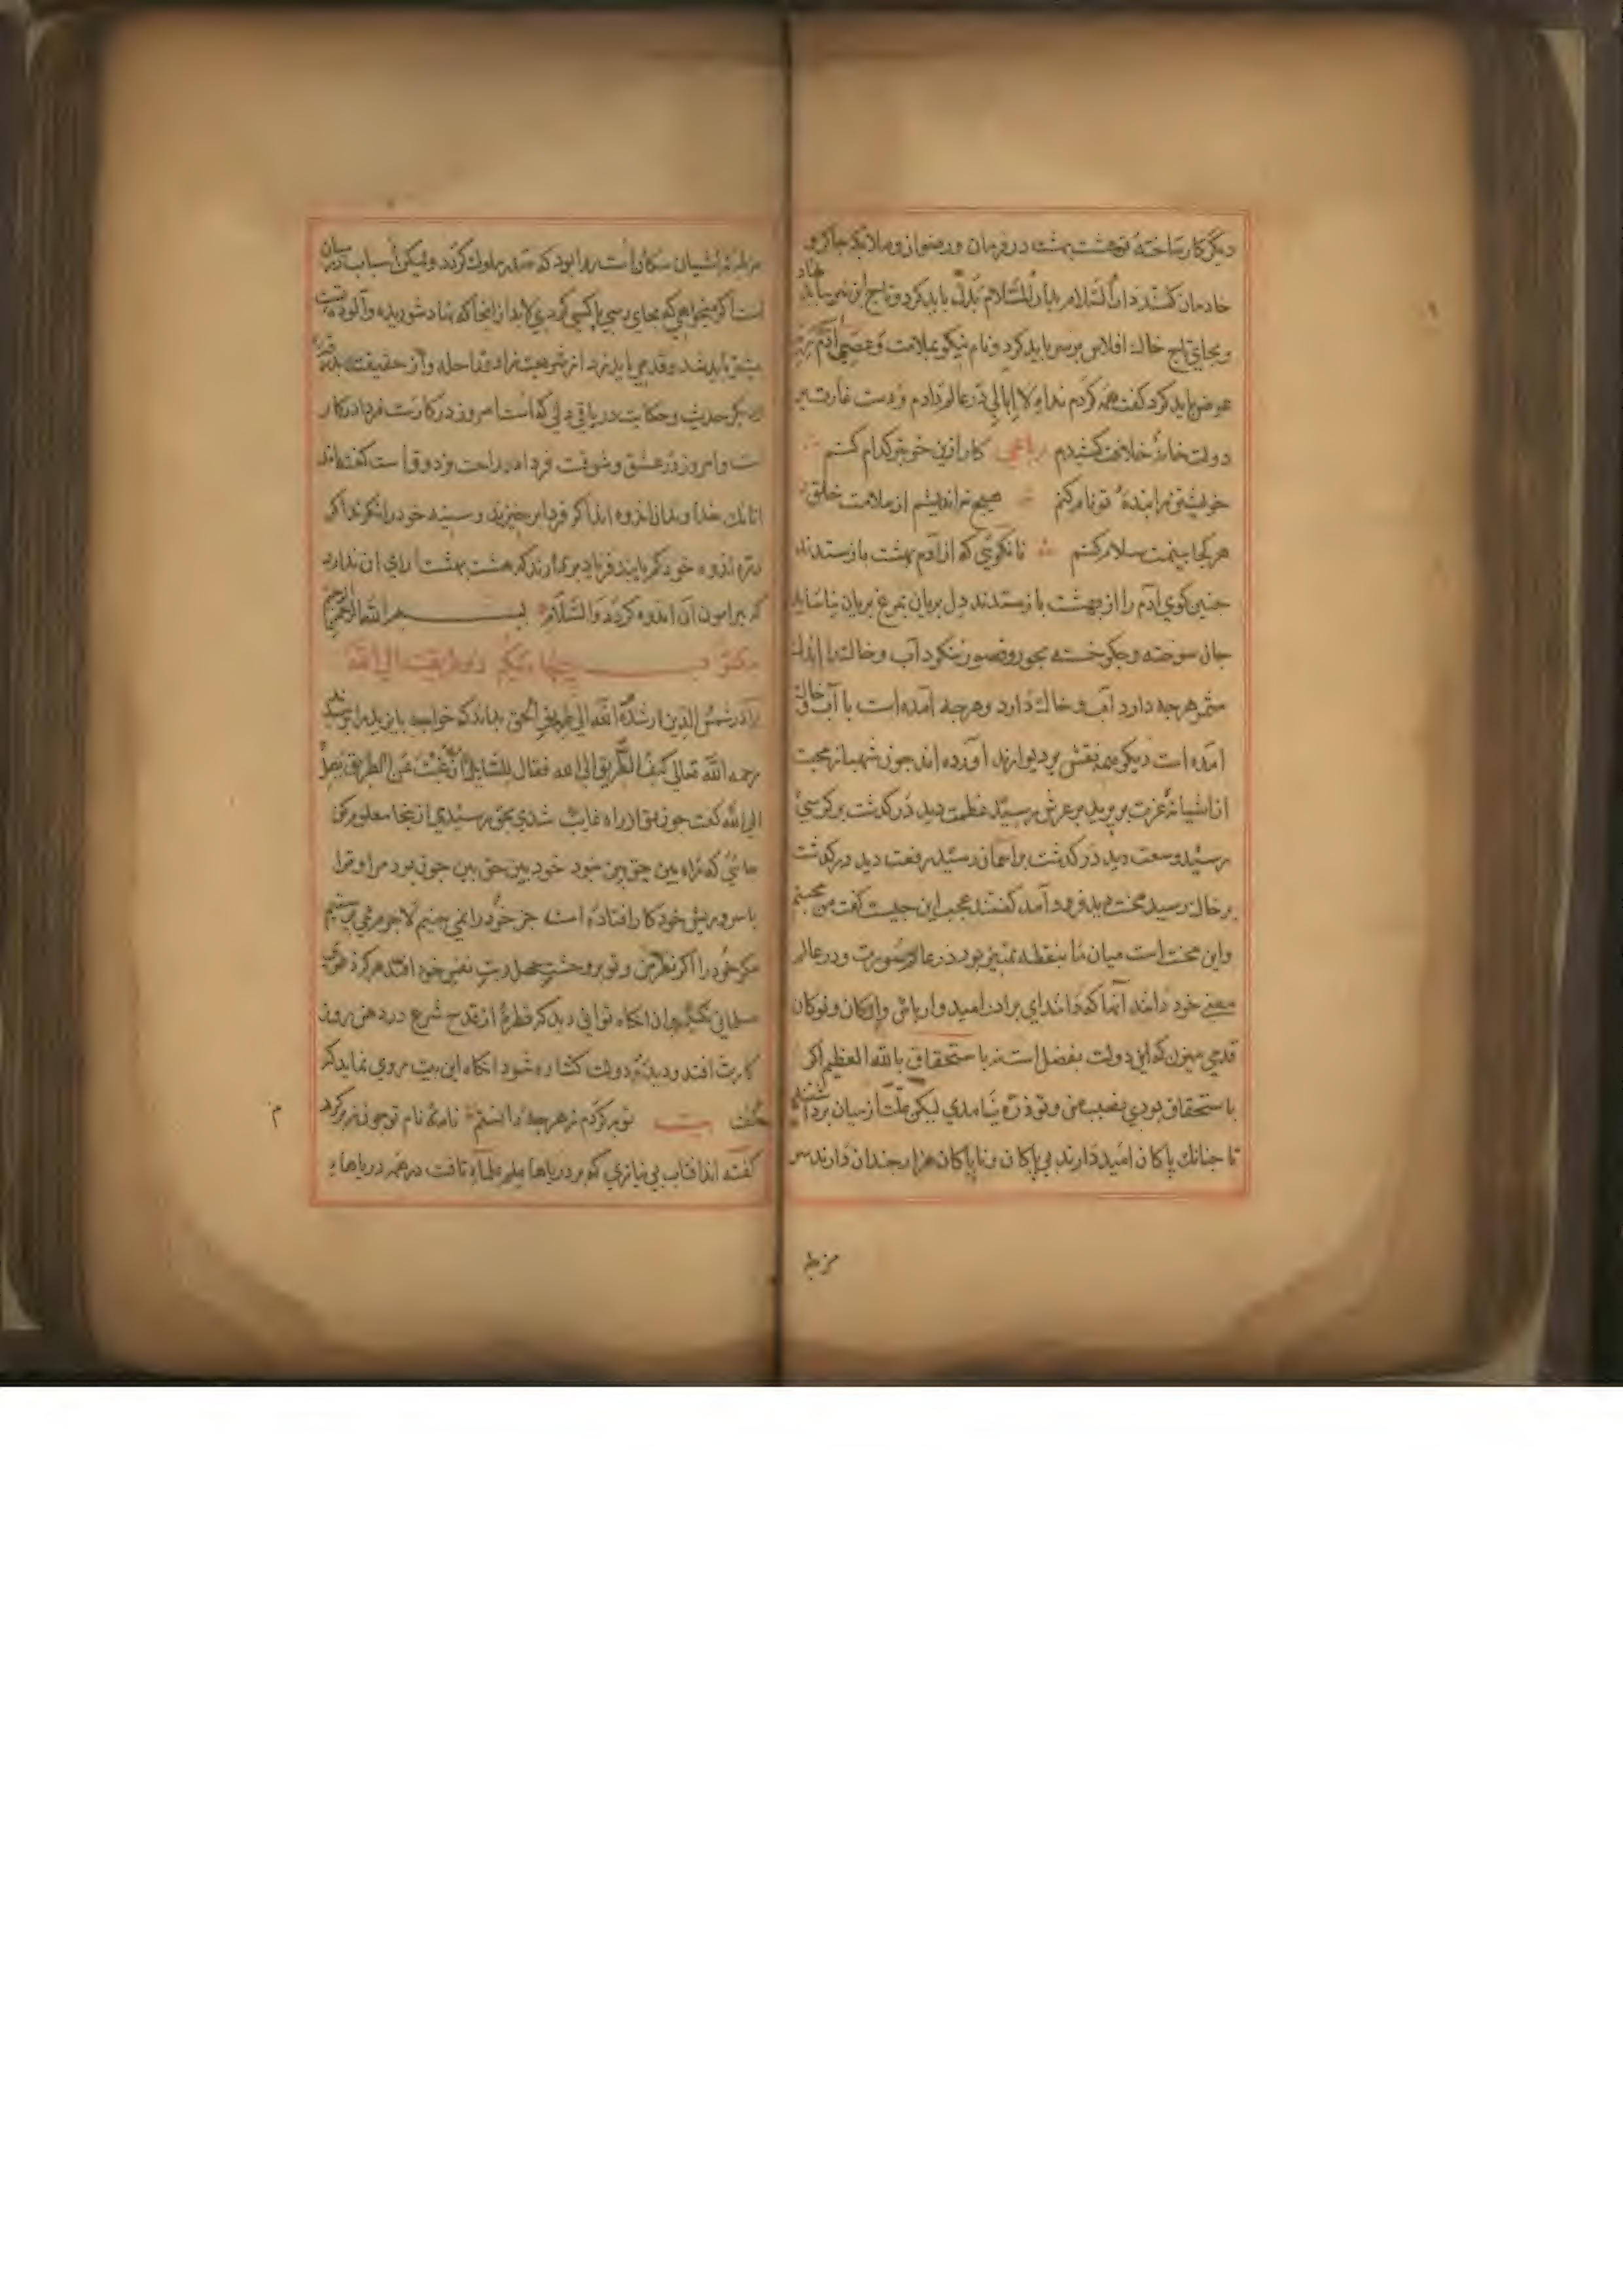 دیگر کار ساخته تو هشت بهشت در فرمان و رضوان و ملائکه چاکر و
خادمان کشند دار السّلام بدار المَلام بَدل باید کرد و تاج از سر بباید نهاد
و بجای تاج خاك افلاس بر سر باید کرد و نام نیکو بملامت وَعَصٰی آدَمُ رَبَّهُ
عوض باید کرد گفت همه کردم نداء لا ابالی در عالم دادم و دست غارت بر
دولت خانۀ خلافت کشیدم رباعی کار ازین خوبتر کدام کنم
خویشتن را بندۀ تو نام کنم هیچ نه اندیشم از ملامت خلق
هر کجا بینمت سلام کنم تا نگویی که از آدم بهشت بازستدند
چنین گوی آدم را از بهشت بازستدند دل بریان بمرغ بریان نیاساید
جان سوخته و جگر خسته بحور و قصور ننگرد آب و خاك را
هرچه دارد آب و خاك دارد و هرچه آمده است با آب و خاك
آمده است دیگر همه نقش بر دیوارند آورده اند چون شهباز محبت
از اشیانۀ عزت بر پرید بر عرش رسید عظمت دید در گذشت بر کرسی
رسید وسعت دید در گذشت بر آسمان رسید رفعت دید در گذشت
بر خاك رسید محنت دید فرود آمد گفتند عجب این چیست گفت من محبتم
و این محنت است میان ما بنقطه تمییز بود در عالم صورت و در عالم
معنی خود دانند آنها که دانند ای برادر امید وار باش و
قدمی میزن که این دولت بفضل است نه باستحقاق بالله العظیم اگر
باستحقاق بودی نصیب من و تو ذرّه نیامدی لیکن علت از میان برداشتند
تا چنانك پاکان امید دارند بی پاکان و ناپاکان هزار چندان دارند
مزبله
مزبله نشیان سگان است روا بود که صدر ملوك گردد ولیکن اسباب درمیان
است اگر میخواهی که بجای رسی یا کسی گردی لابد از آنجا که نهاد شوریده و آلوده تست
پیشتر باید شد و قدمی باید زد از شریعت زاد و راحله و از حقیقت بدرقه
دیگر حدیث و حکایت در باقی دلی که است امروز در کارست فردا در کار
است و امروز در عشق و شوقست فردا در راحت و ذوق است گفته اند
آنانك خداوندان اندوه اند اگر فردا برخیزند و سینه خود را نگرند اگر
ذره اندوه خود کم یابند فریاد بر آرند که هشت بهشت را رای آن ندارد
که پیرامون آن اندوه گردد وَالسَّلَام بسم الله الرحمن الرحیم
مکتوب چهارم در طریقت الی الله
برادر شمس الدین ارشده الله الی طریق الحق بداند که خواجه بایزید را پرسیدند
رحمه الله تعالی کیف الطریق الی الله فقال للسّایل ان غبت عن الطریق تصل
الی الله گفت چون تو از راه غایب شدی بحق رسیدی از ینجا معلوم کن
جائی که راه بین حق بین نبود خود بین حق بین چون بود مرا و ترا
با سر و ریش خود کار افتاده است جز خود را نمی بینم لاجرم نمی پرستیم
مگر خود را اگر نظر من و تو بر وحشت جهل و بت نفس خود افتد هرگز دعوی
مسلمانی نکنیم بدان انگاه توانی دید که قطره از قدح شرع در دهن روز
کارت افتد و دیدۀ دولت گشاده شود انگاه این بیت روی نماید که
گفت بیت توبه کردم ز هرچه دانستم نامۀ نام تو چون نبرگرد
گفته اند افتاب بی نیازی که بر دریاها علم علماء تافت در همه دریاها